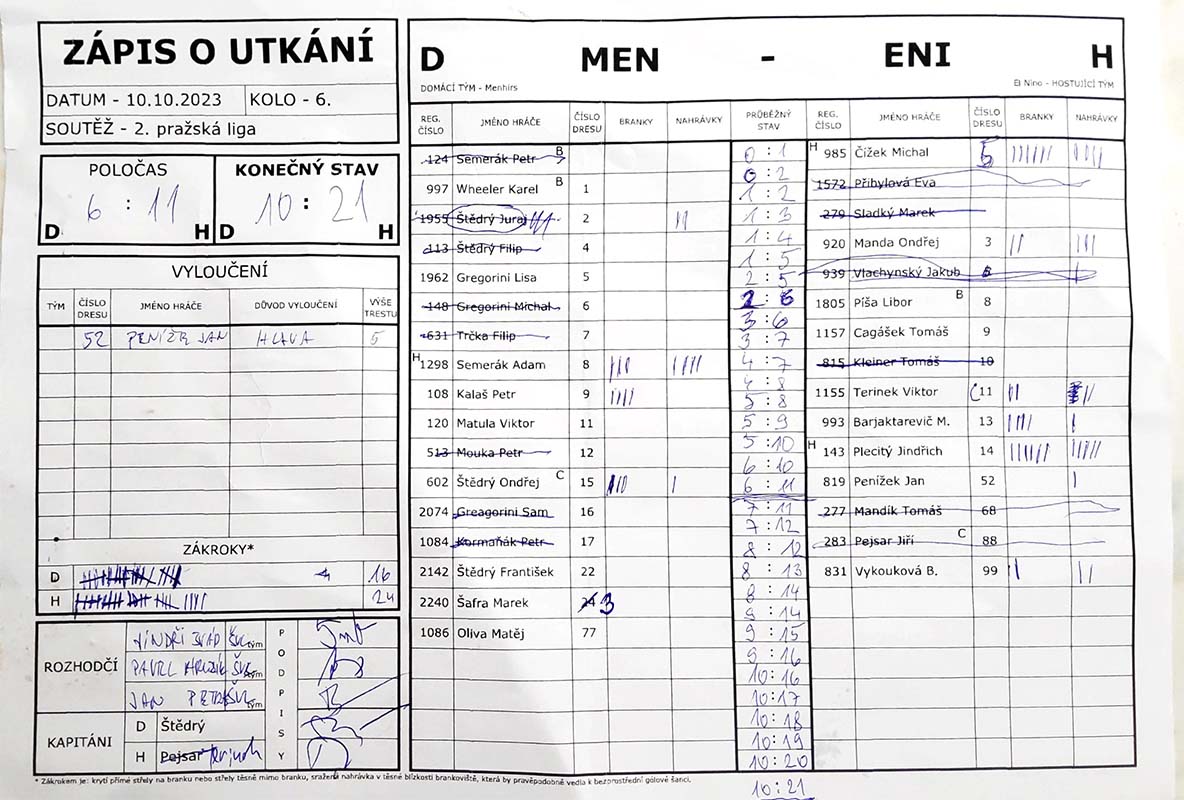 ZÁPIS O UTKÁNÍ
DATUM - 10.10.2023 KOLO - 6.
SOUTĚŽ - 2. pražská liga
POLOČAS KONEČNÝ STAV
6 : 11 10 : 21
D H D H
VYLOUČENÍ
TÝM ČÍSLO DRESU JMÉNO HRÁČE DŮVOD VYLOUČENÍ VÝŠE TRESTU
52 PENÍŽEK JAN HLAVA 5
ZÁKROKY*
D 16
H 24
ROZHODČÍ
JINDŘI
PAVEL
JAN
tým
tým
tým
PODPISY
KAPITÁNI
D Štědrý
H Pejsar
D MEN - ENI H
DOMÁCÍ TÝM - Menhirs El Nino - HOSTUJÍCÍ TÝM
REG. ČÍSLO JMÉNO HRÁČE ČÍSLO DRESU BRANKY NAHRÁVKY PRŮBĚŽNÝ STAV REG. ČÍSLO JMÉNO HRÁČE ČÍSLO DRESU BRANKY NAHRÁVKY
124 Semerák Petr B
997 Wheeler Karel B 1
1955 Štědrý Juraj 2
113 Štědrý Filip 4
1962 Gregorini Lisa 5
148 Gregorini Michal 6
631 Trčka Filip 7
H 1298 Semerák Adam 8
108 Kalaš Petr 9
120 Matula Viktor 11
513 Mouka Petr 12
602 Štědrý Ondřej C 15
2074 Greagorini Sam 16
1084 Kormaňák Petr 17
2142 Štědrý František 22
2240 Šafra Marek 24 3
1086 Oliva Matěj 77
0 : 1
0 : 2
1 : 2
1 : 3
1 : 4
1 : 5
2 : 5
2 : 6
3 : 6
3 : 7
4 : 7
4 : 8
5 : 8
5 : 9
5 : 10
6 : 10
6 : 11
7 : 11
7 : 12
8 : 12
8 : 13
8 : 14
9 : 14
9 : 15
9 : 16
10 : 16
10 : 17
10 : 18
10 : 19
10 : 20
10 : 21
H 985 Čížek Michal 5
1572 Přibylová Eva
279 Sladký Marek
920 Manda Ondřej 3
939 Vlachynský Jakub
1805 Píša Libor B 8
1157 Cagášek Tomáš 9
815 Kleiner Tomáš 10
1155 Terinek Viktor C 11
993 Barjaktarevič M. 13
H 143 Plecitý Jindřich 14
819 Penížek Jan 52
277 Mandík Tomáš 68
283 Pejsar Jiří C 88
831 Vykouková B. 99
* Zákrokem je: krytí přímé střely na branku nebo střely těsně mimo branku, sražená nahrávka v těsné blízkosti brankoviště, která by pravěpodobně vedla k bezprostřední gólové šanci.